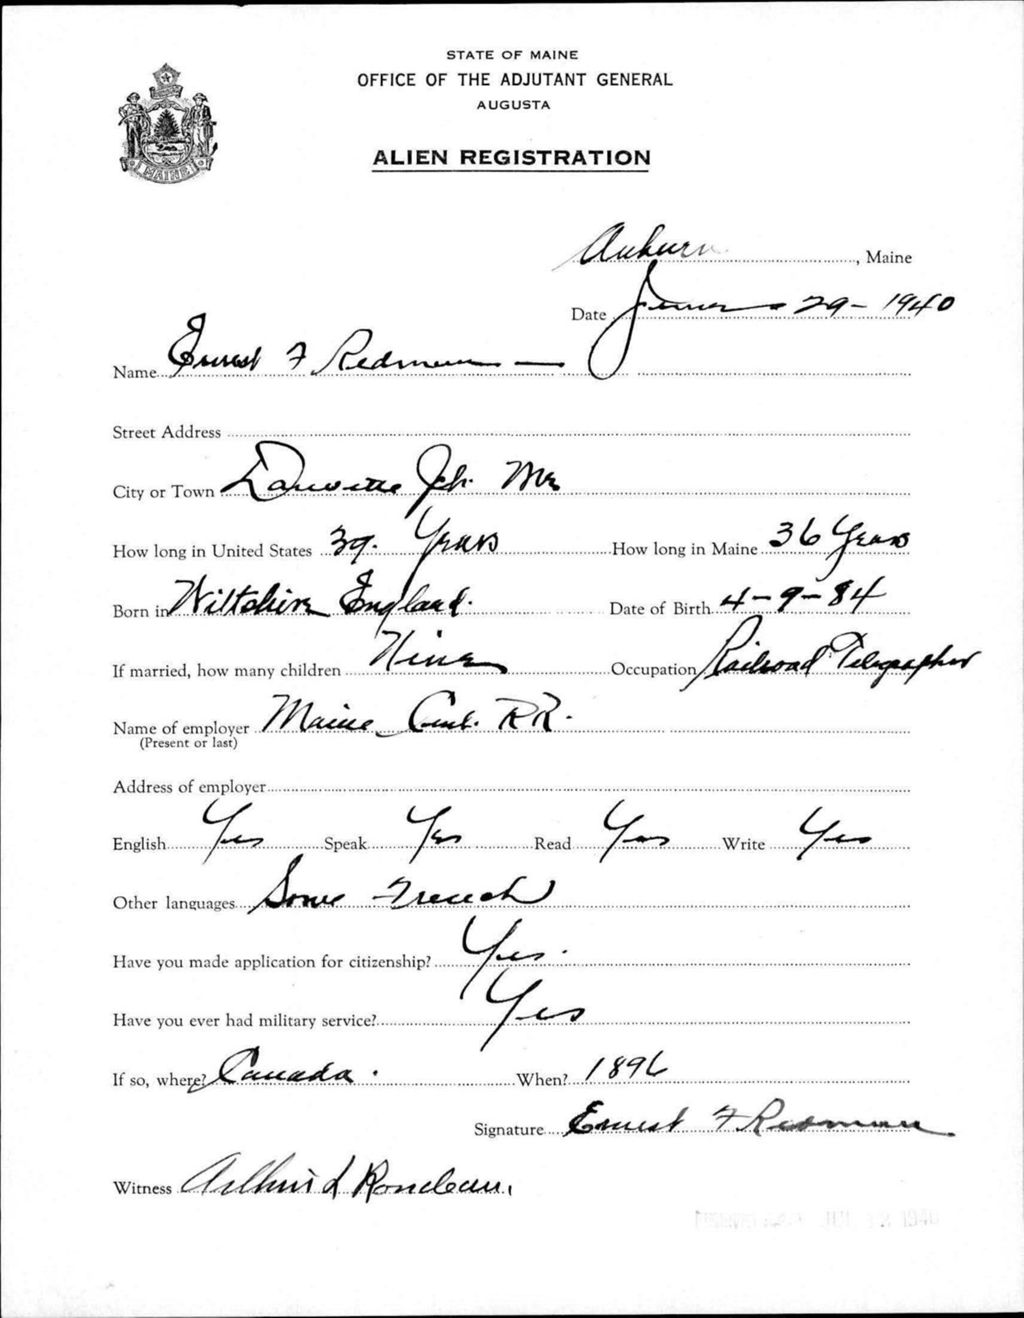 STATE OF MAINE
OFFICE OF THE ADJUTANT GENERAL
AUGUSTA
MAINE
ALIEN REGISTRATION
Auburn, Maine
Date June 29 - 1940
Name Ernest F Redman
Street Address
City or Town Jct. Me
How long in United States 39. Years How long in Maine 36 Years
Born in Wiltshire England. Date of Birth 4-9-84
If married, how many children Nine Occupation Railroad Telegrapher
Name of employer Maine Cent. RR.
(Present or last)
Address of employer
English Yes Speak Yes Read Yes Write Yes
Other languages Some French
Have you made application for citizenship? Yes.
Have you ever had military service? Yes
If so, where? Canada. When? 1896
Signature Ernest F Redman
Witness Arthur L Rondeau.
1940